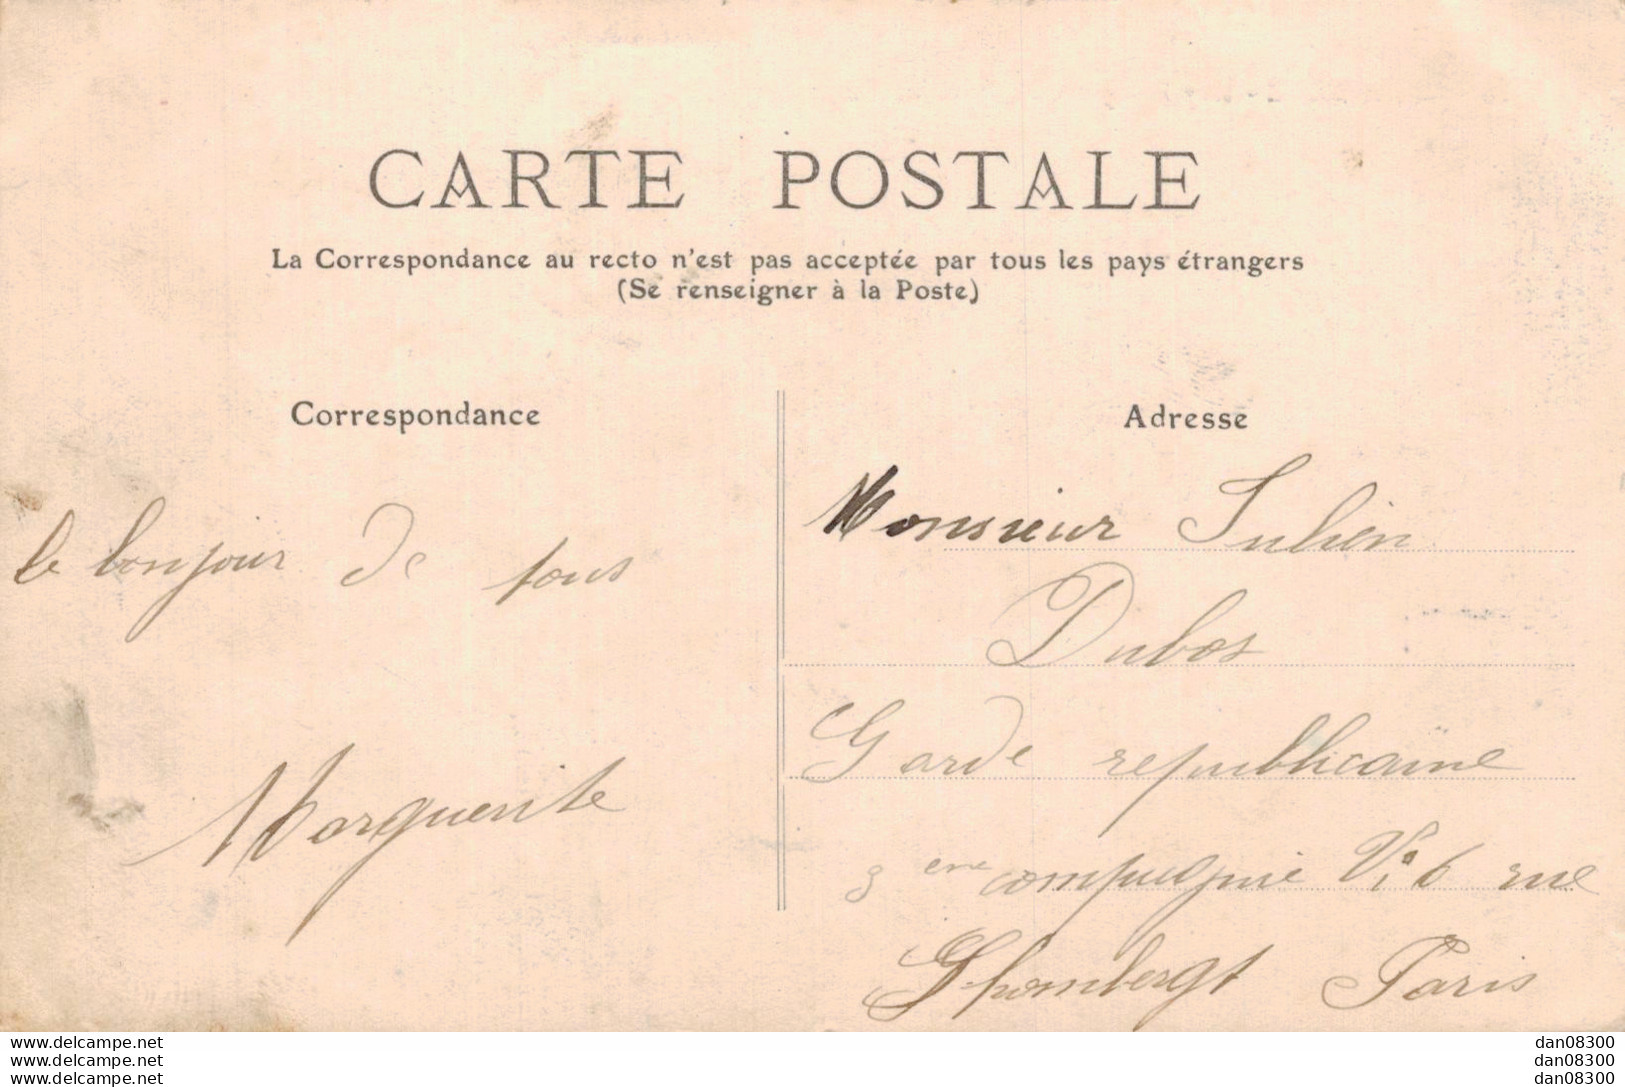 CARTE POSTALE
La Correspondance au recto n'est pas acceptée par tous les pays étrangers
(Se renseigner à la Poste)
Correspondance
le bonjour de tous
Marguerite
Adresse
Monsieur Julien
Dubos
Garde republicaine
3 eme compagnie 6 rue
Shombergt Paris
www.delcampe.net
www.delcampe.net
www.delcampe.net
dan08300
dan08300
dan08300